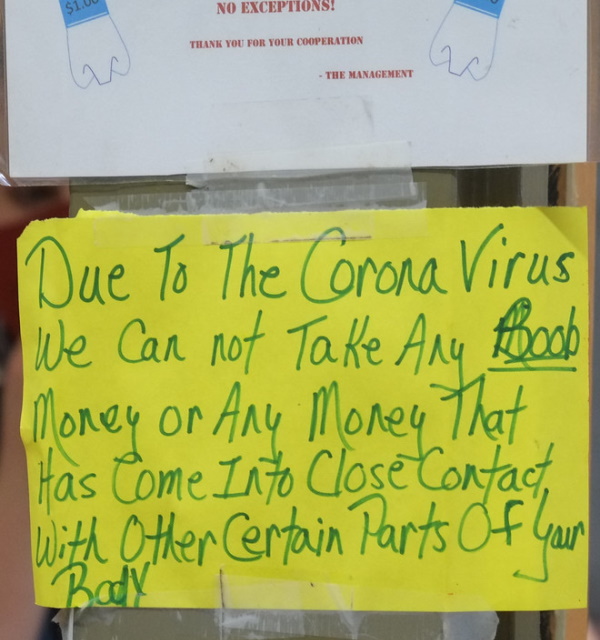 $1.00
NO EXCEPTIONS!
THANK YOU FOR YOUR COOPERATION
- THE MANAGEMENT
Due To The Corona Virus
We Can not Take Any Boob
Money or Any Money That
Has Come Into Close Contact
With Other Certain Parts Of Your
Body